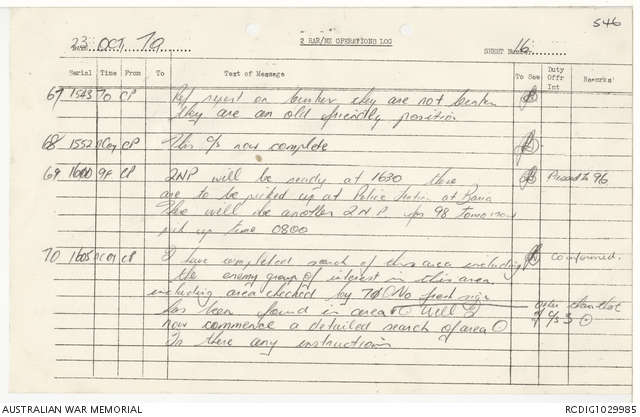 546
23 OCT 70
2 RAR/NZ OPERATIONS LOG
SHEET 16
Serial Time From To Text of Message To See Duty Offr Int Remarks
67 1543 70 CP Ref report on bunker they are not bunker
they are an old friendly position
68 1552 CP This c/s now complete
69 1600 9F CP 2NP will be ready at 1630 these Passed to 96
are to be picked up at Police Station at Baria
There will be another 2NP for 98 tomorrow
pick up time 0800
70 1605 CP I have completed search of this area including Confirmed.
the enemy group of interest in this area
including area checked by 70 No fresh sign
has been found in area Will other than that of c/s 3
now commence a detailed search of area
Is there any instructions
AUSTRALIAN WAR MEMORIAL
RCDIG1029985